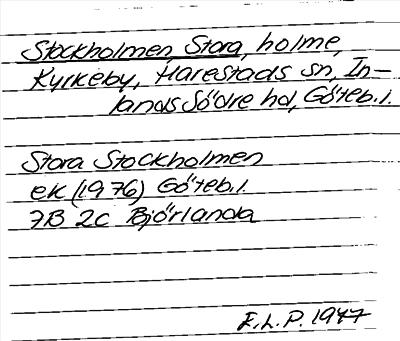 Stockholmen Stora, holme,
Kyrkeby, Harestads sn, In-
lands Södre hd, Göteb. l.
Stora Stockholmen
ek (1976) Göteb. l.
7B 2c Björlanda
E.L.P. 1977